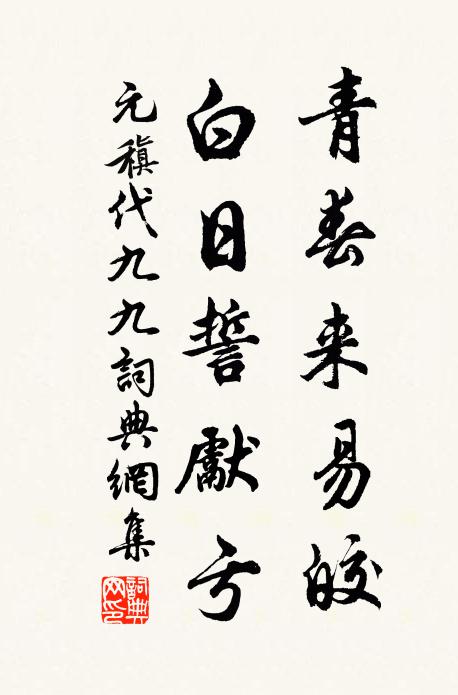 青春来易皎
白日誓獻亏
元稹代九九詞典網集
詞典网印